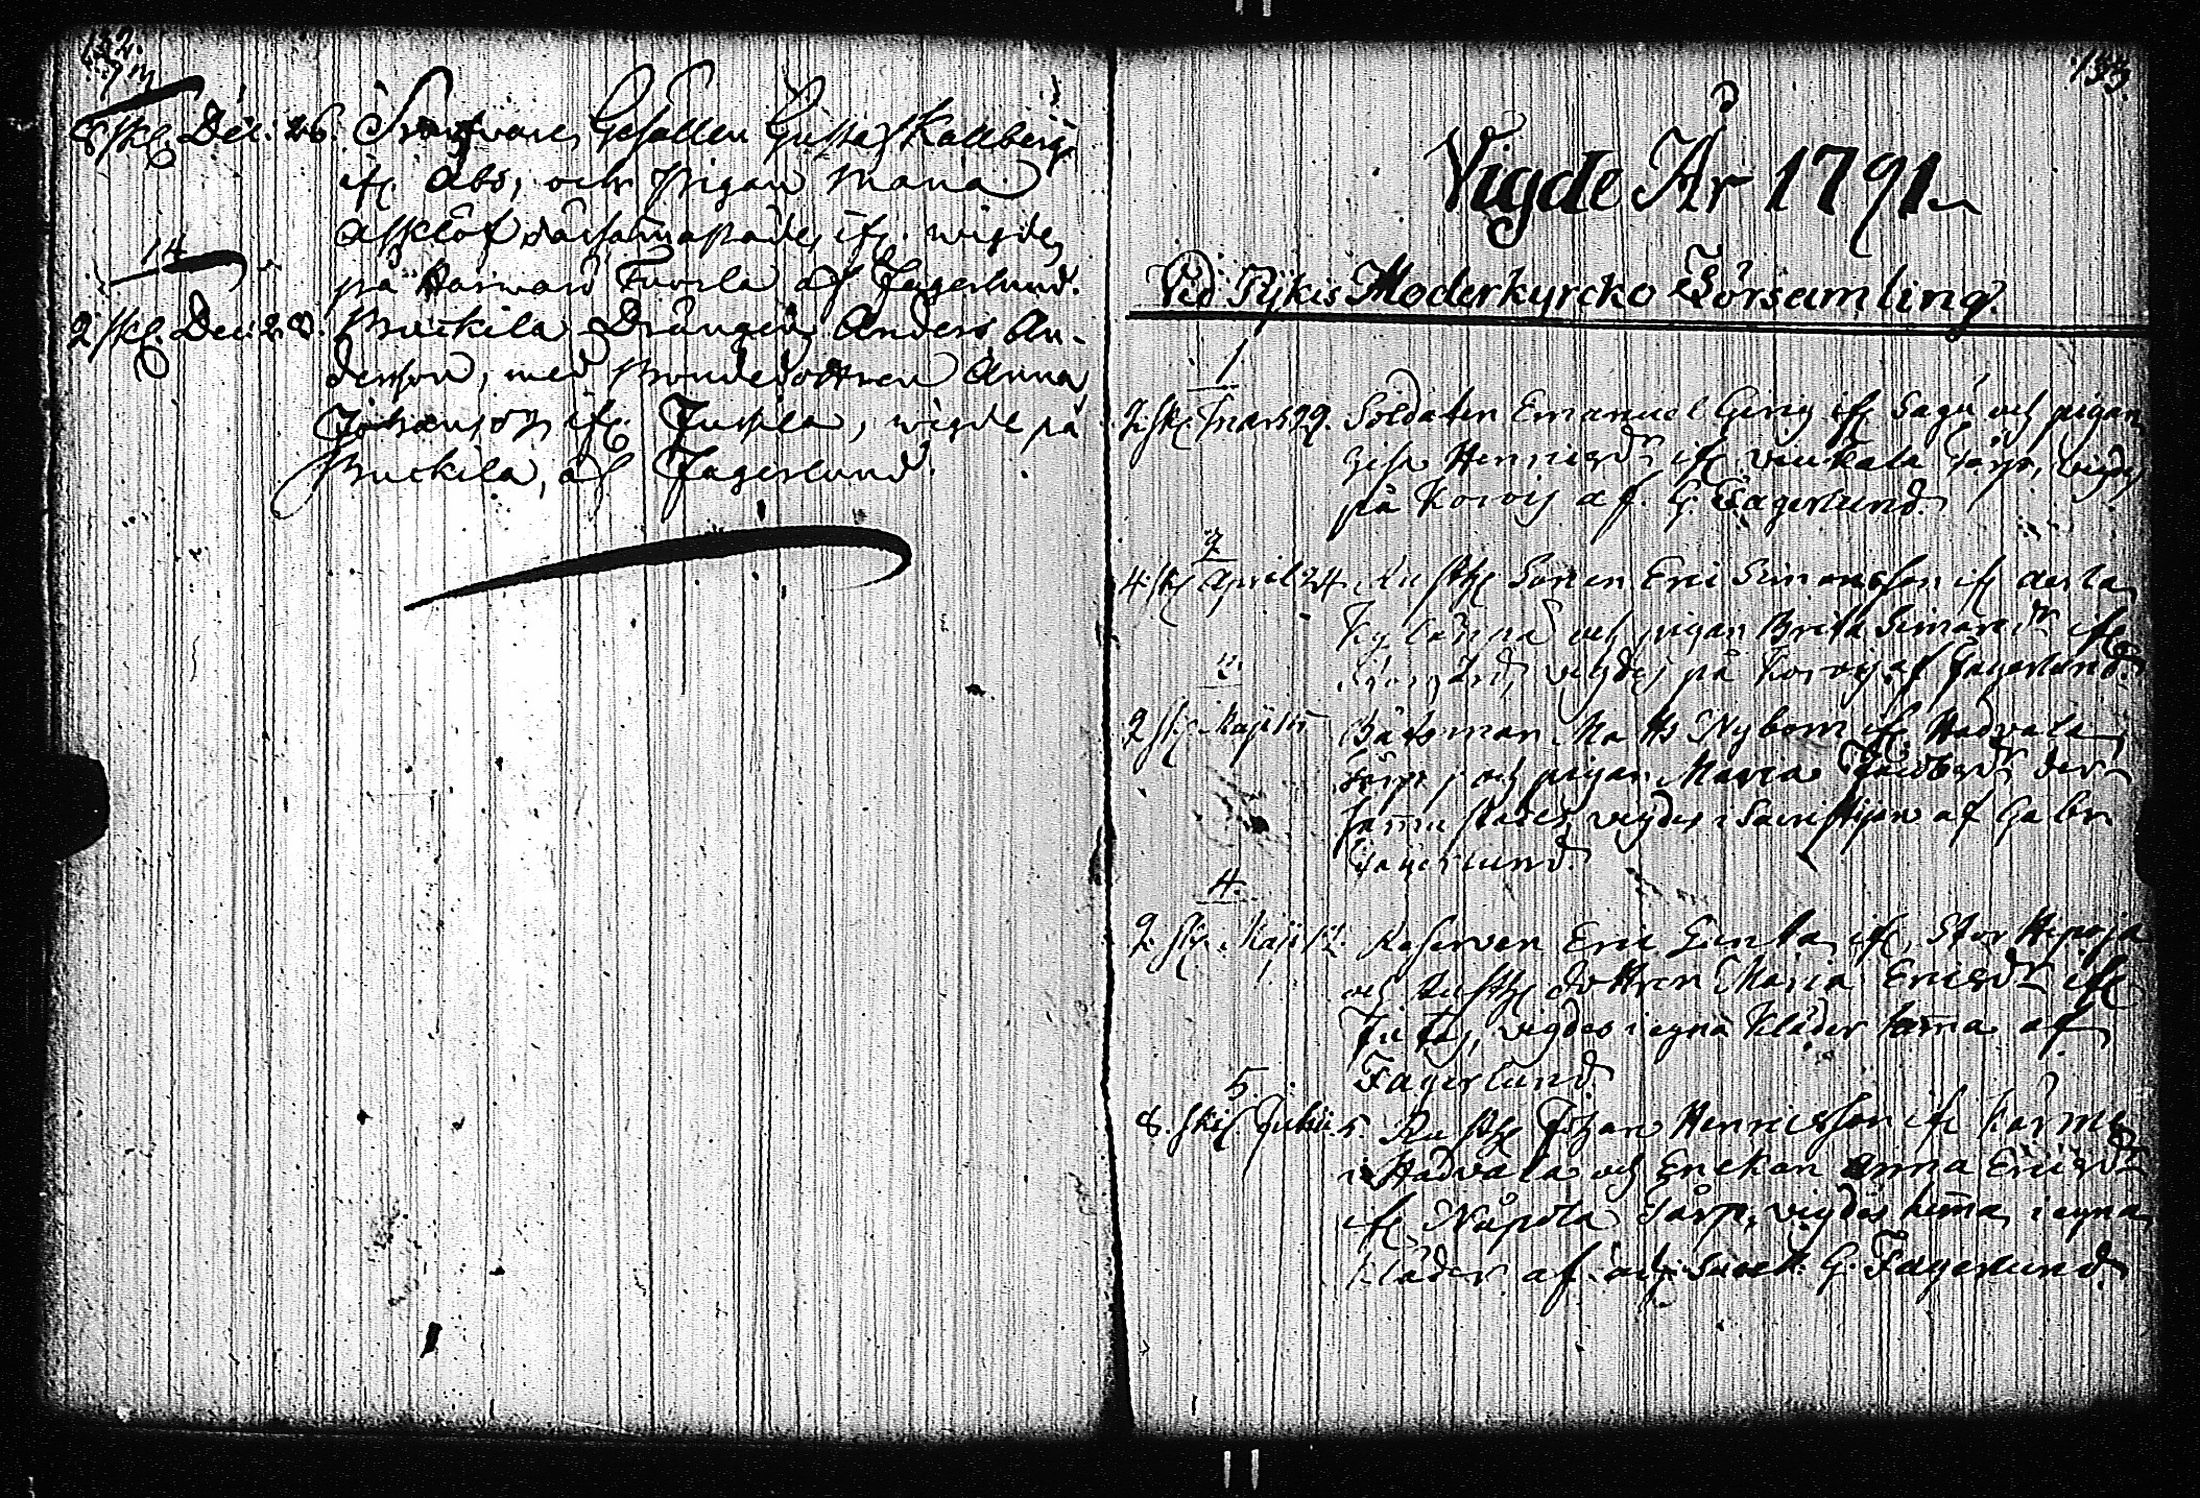 132.
13
8 skl. Dec. 26. Svarfvare Gesällen Gustaf Kallberg
ifr. Åbo, och Pigan Maria
Asklöf därsammastädes ifr. wigde
på Harvais Tuorla af Fagerlund.
14
2 skl. Dec. 28. Bruckila Drängen Anders An-
dersson, med Bondedottren Anna
Johansdr ifr. Jussila, wigde på
Bruckila, af Fagerlund.
133.
Vigde År 1791
Vid Pijkis Moderkyrcko Församling.
1
2. sk. Mars 29. Soldaten Emanuel ifr Sagu och pigan
Lisa Henricsdr ifr torp, vigdes
på Korois af G. Fagerlund.
2
4. sk. April 24. Rusth. Sonen Eric Simonsson ifr
och pigan Brita Simonsdr ifr
vigdes på Korois af Fagerlund.
3
2 sk. Maji Båtsman Matts Nybom ifr Hadvala
torp, och pigan Maria Jacobsdr der-
samastädes, vigdes i Sacristijan af Gabr.
Fagerlund.
4.
2. sk. Maji 12. Reserven Eric ifr. Stor Hepoja
och Rusth. dottren Maria Ericsdr ifr
vigdes i egna Kläder hema af
Fagerlund
5.
8. skil. Julii 5. Rusth. Johan Henricsson ifr
i Hadvala och Enckan Anna Ericsdr
ifr Nuppola Torp, vigdes hema i egna
kläder af G. Fagerlund.